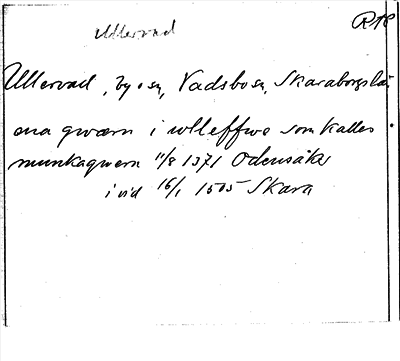 Ullervad
RAP
Ullervad, by o sn, Vadsbo sn, Skaraborgs län
ena qwærn i wlleffwe som kalles
munkaqwern 11/8 1371 Odensåker
i vid 16/1 1505 Skara